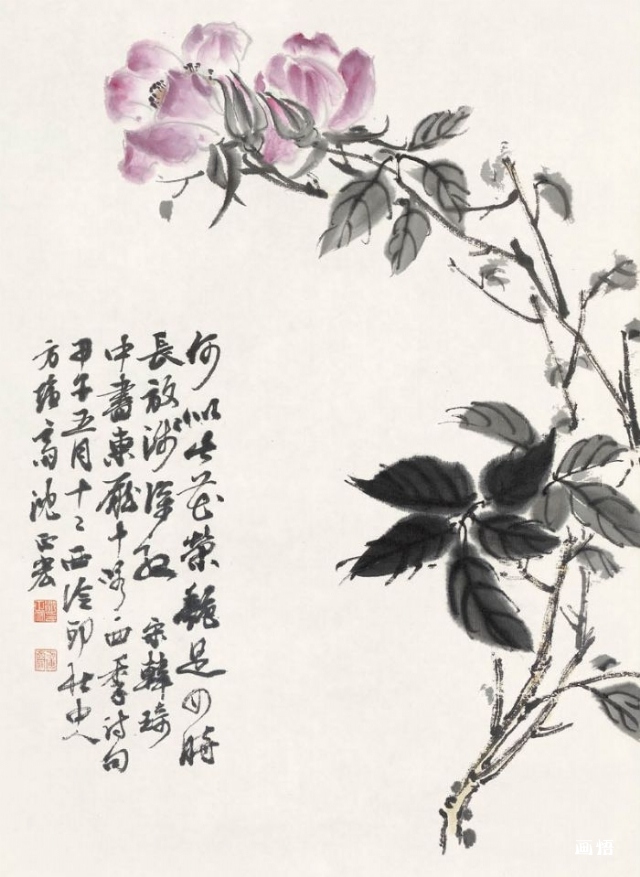 何似此花榮艷足四時
長放淺深紅 宋韓琦
中書東廳十詠四季詩句
甲午五月十二西泠印社中人
方 齋沈正宏
画悟